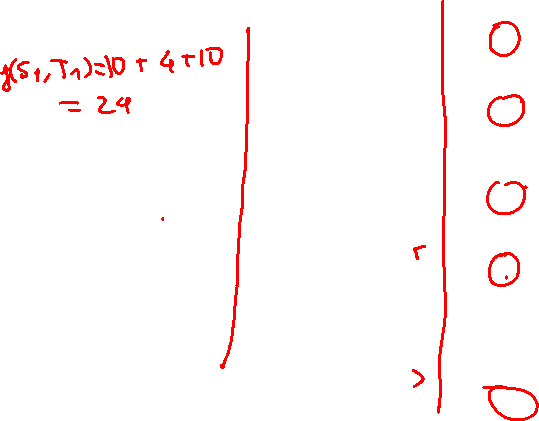 f(S1, T1) = 10 + 4 + 10
= 24